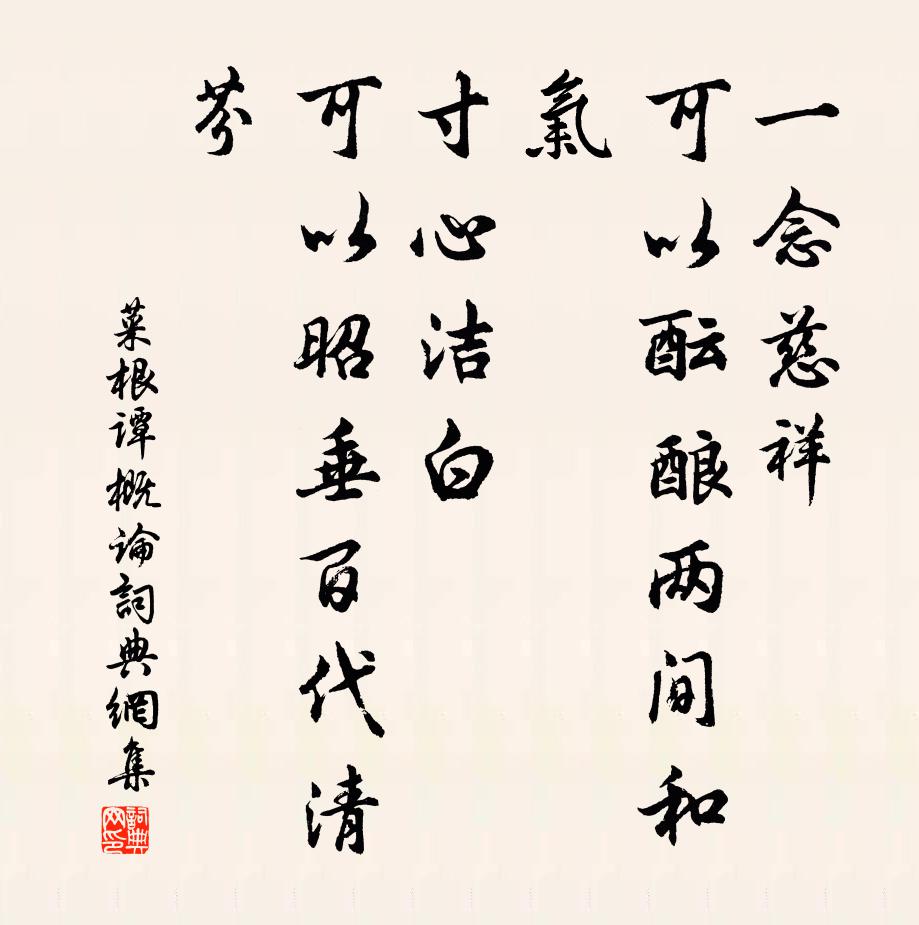 一念慈祥
可以酝酿两间和
氣
寸心洁白
可以昭垂百代清
芬
菜根谭概論詞典網集
詞典网印